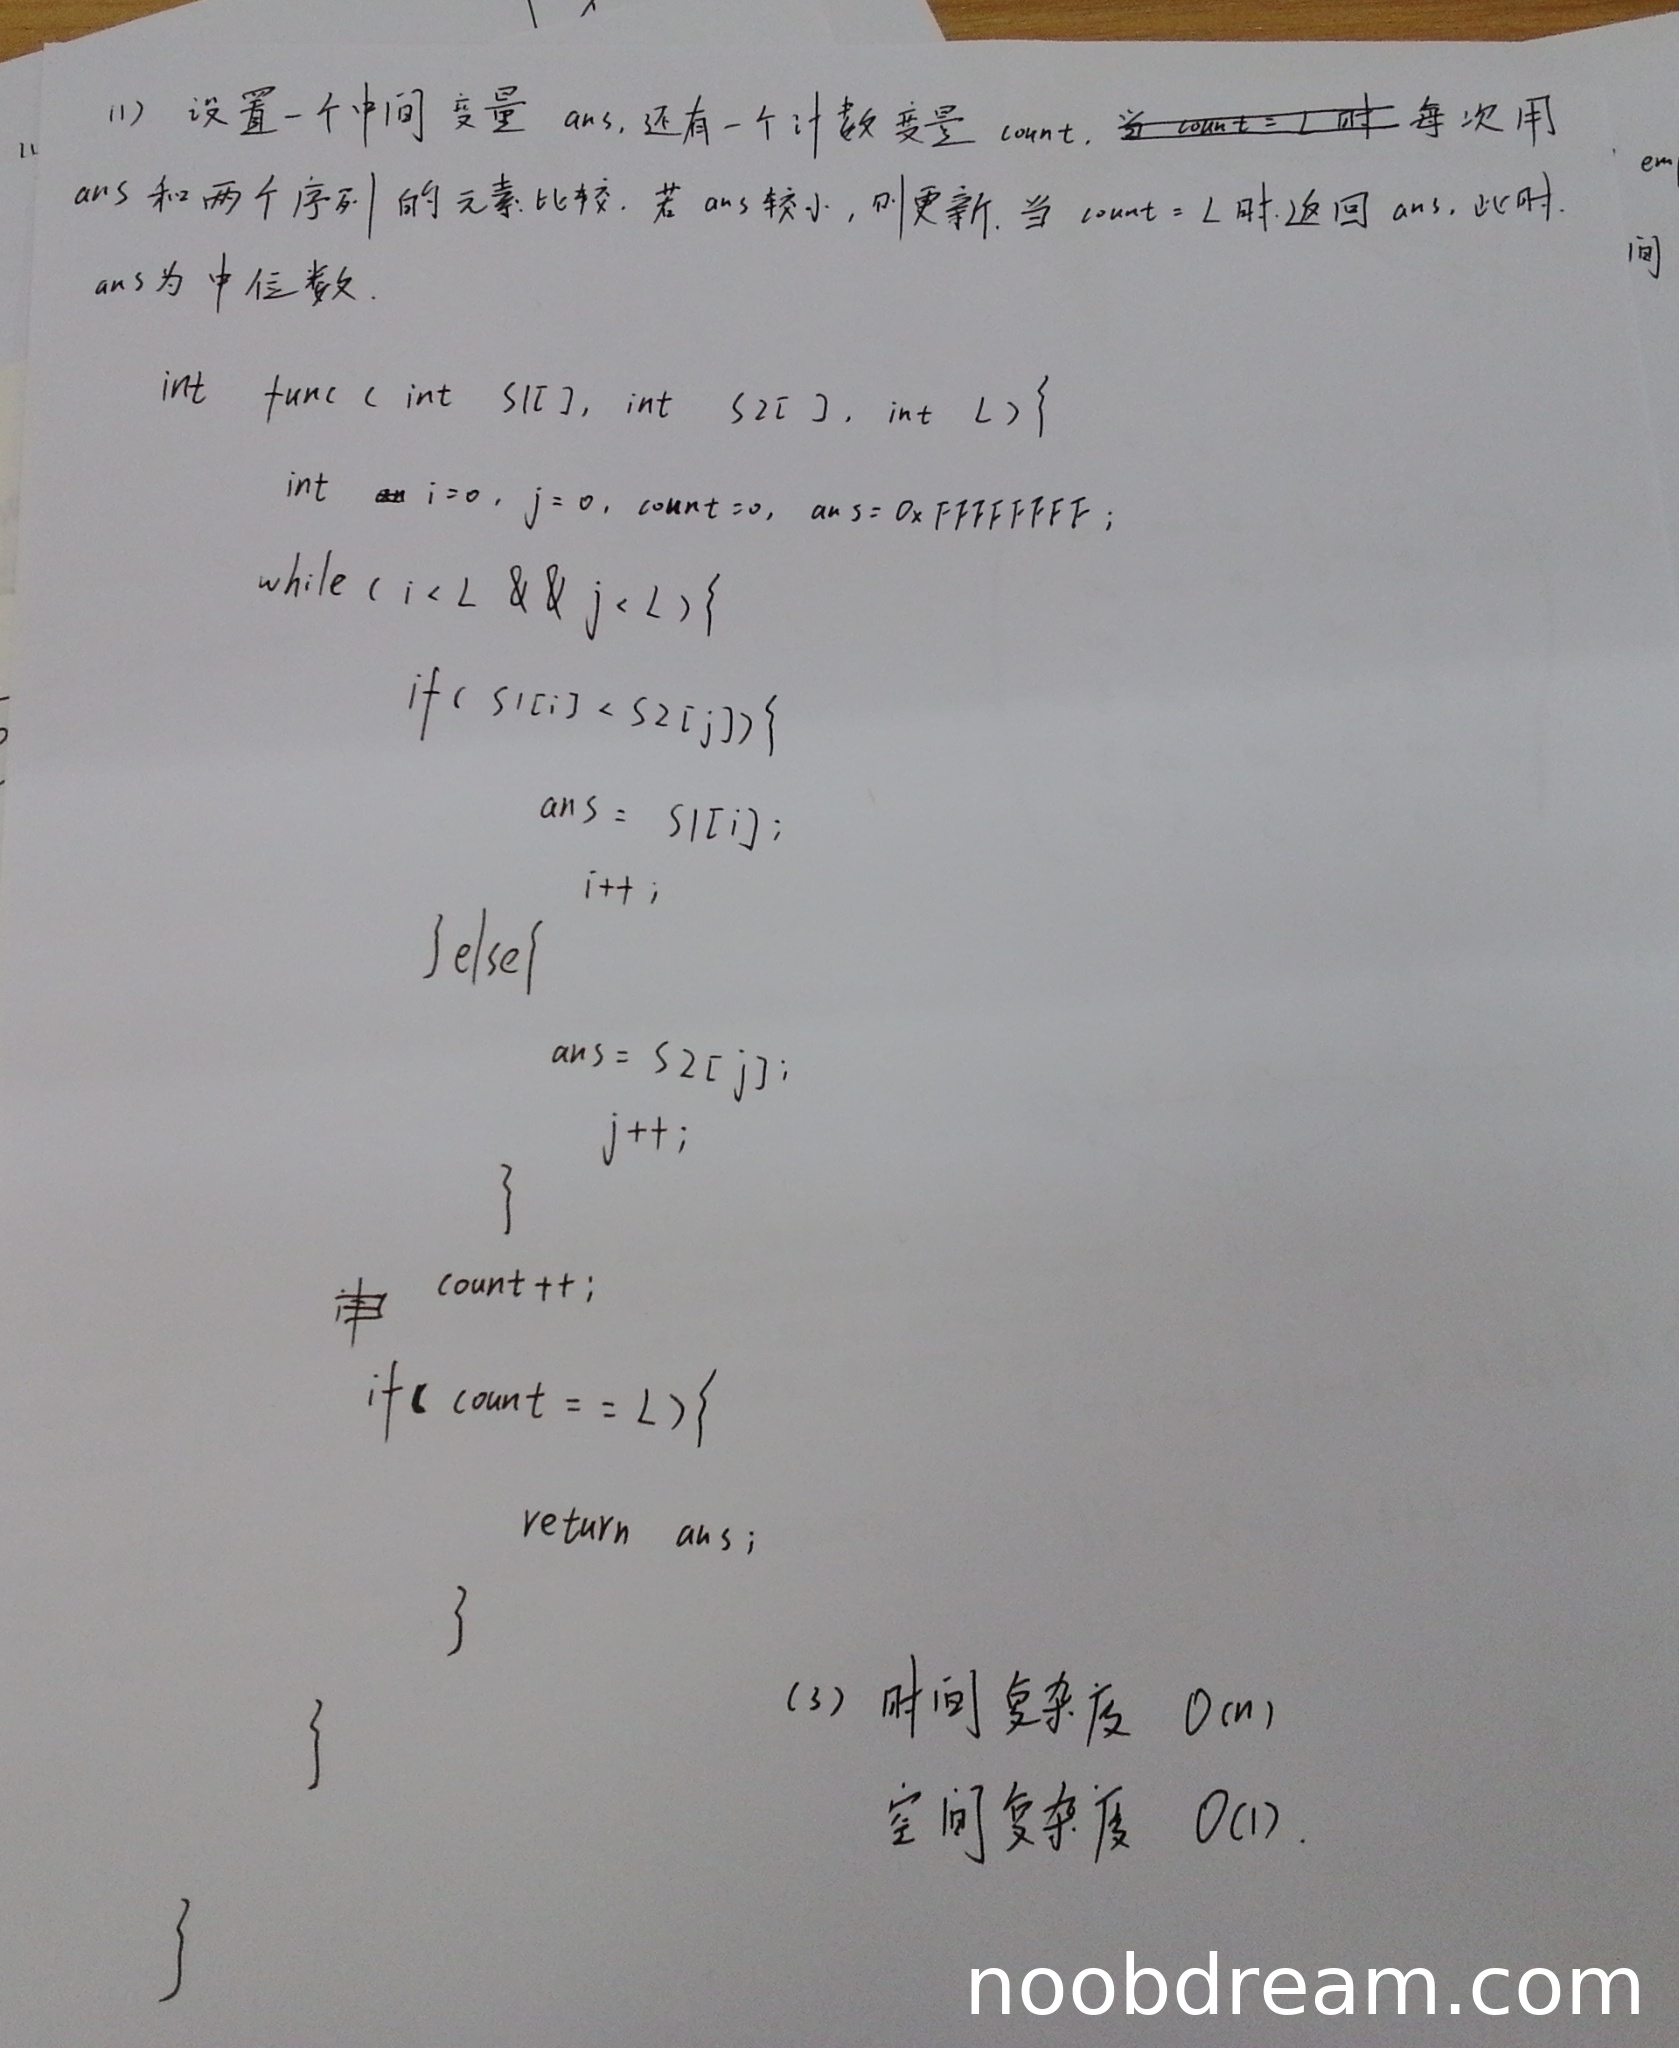 (1) 设置一个中间变量 ans, 还有一个计数变量 count, 当 count = L 时 每次用
ans 和两个序列的元素比较. 若 ans 较小, 则更新. 当 count = L 时返回 ans, 此时.
ans为中位数.
int func ( int S1[ ], int S2[ ], int L ) {
int i=0, j=0, count=0, ans=0xFFFFFFFF;
while ( i < L && j < L ) {
if ( S1[i] < S2[j]) {
ans = S1[i];
i++;
} else {
ans = S2[j];
j++;
}
count++;
if ( count == L ) {
return ans;
}
}
}
(3) 时间复杂度 O(n)
空间复杂度 O(1).
em
间
noobdream.com